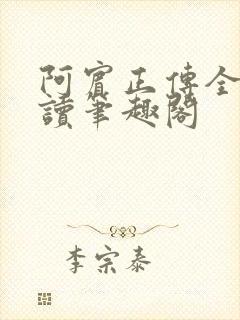 阿賓正傳全
讀筆趣閣
李宗泰